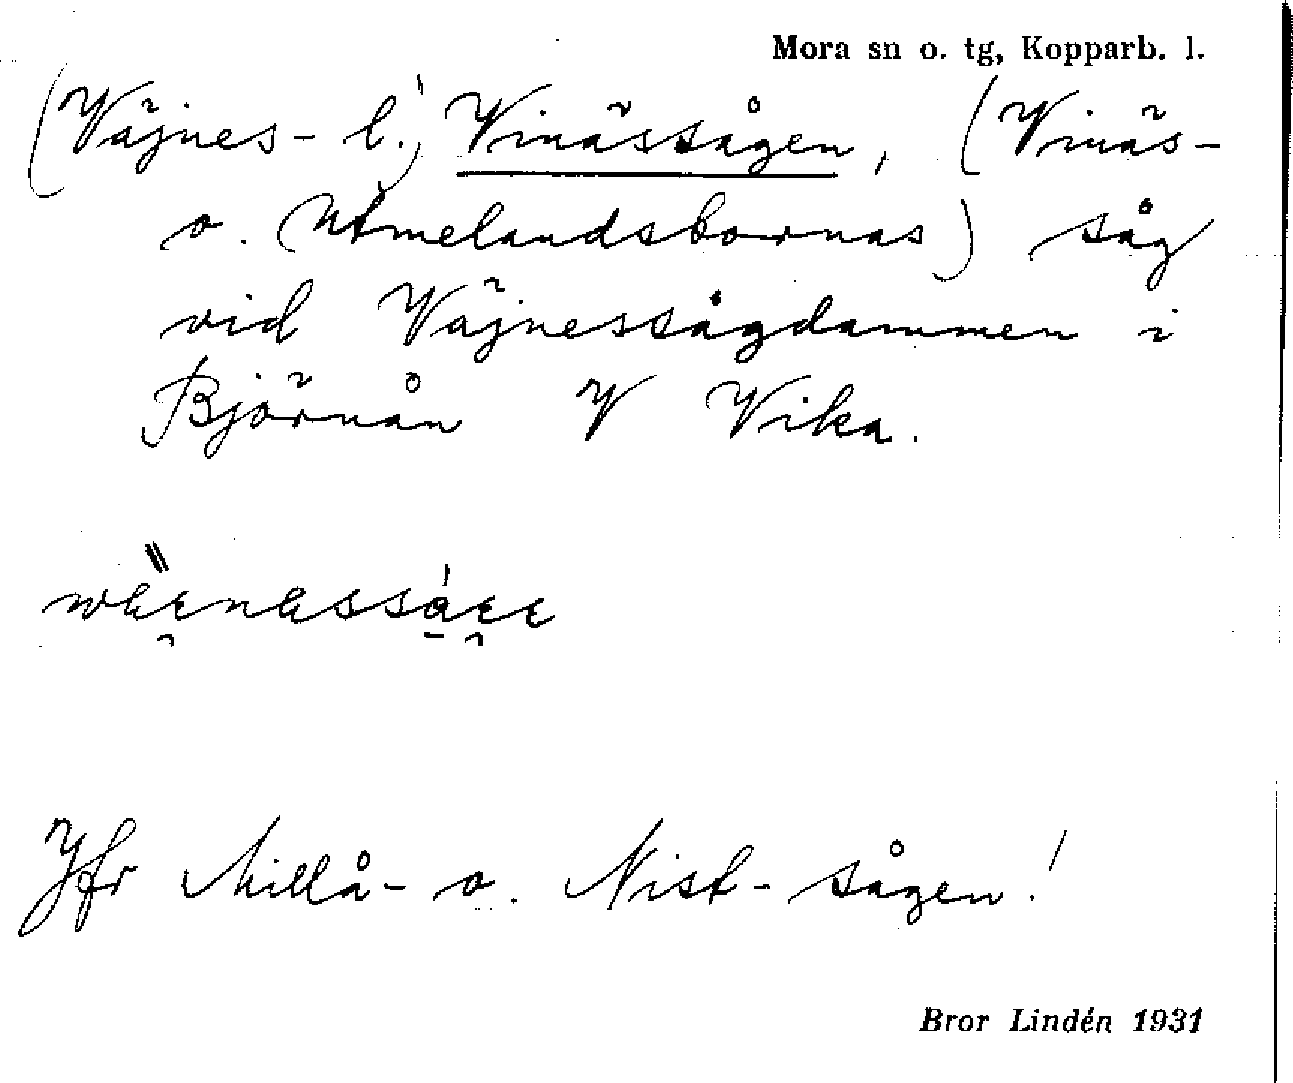 Mora sn o. tg, Kopparb. l.
(Väjnes- l.) Vinässågen, (Vinäs-
o. Utmelandsbornas) såg
vid Väjnessågdammen i
Björnån V Vika.
Jfr Millå- o. Nist- sågen!
Bror Lindén 1931